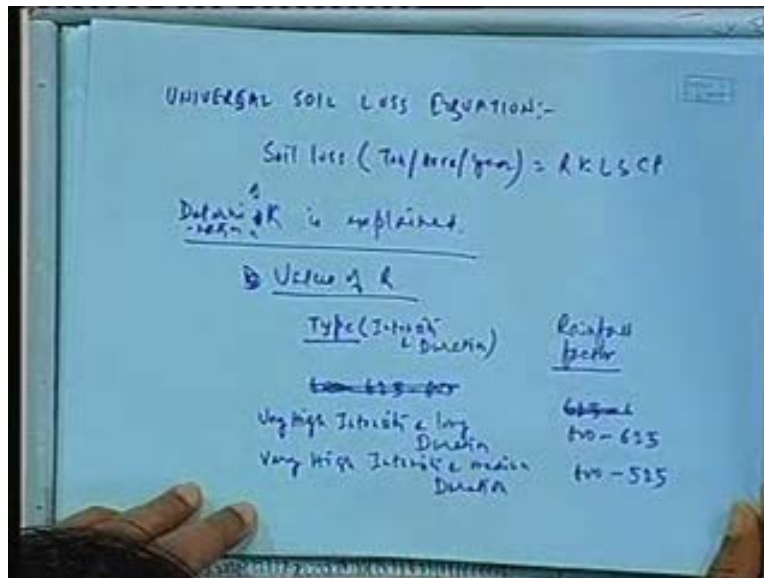 UNIVERSAL SOIL LOSS EQUATION:-
Soil loss (Ton/Acre/year) = RKLSCP
K is explained.
Value of R
Type (Intensity & Duration)
Rainfall factor
Very High Intensity & long Duration
- 625
Very High Intensity & medium Duration
- 525